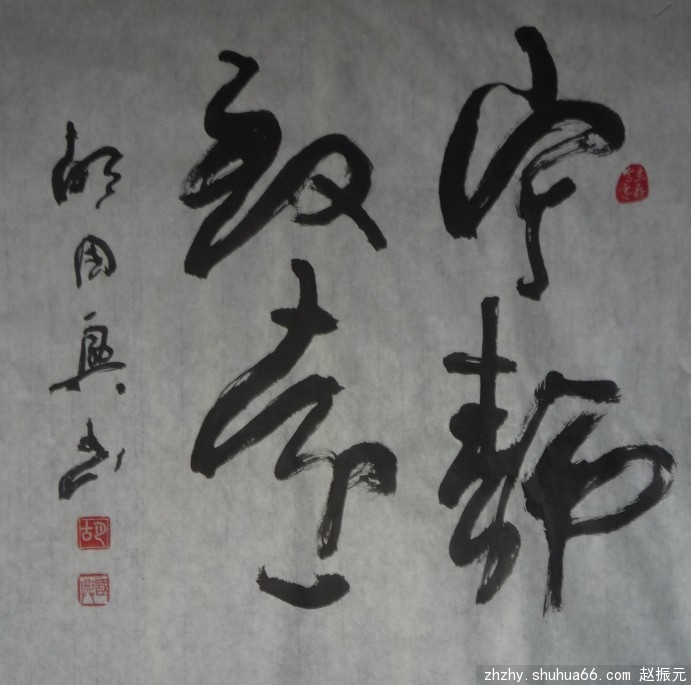 宁静
致遠
胡国興书
胡
國興
zhzhy.shuhua66.com 赵振元